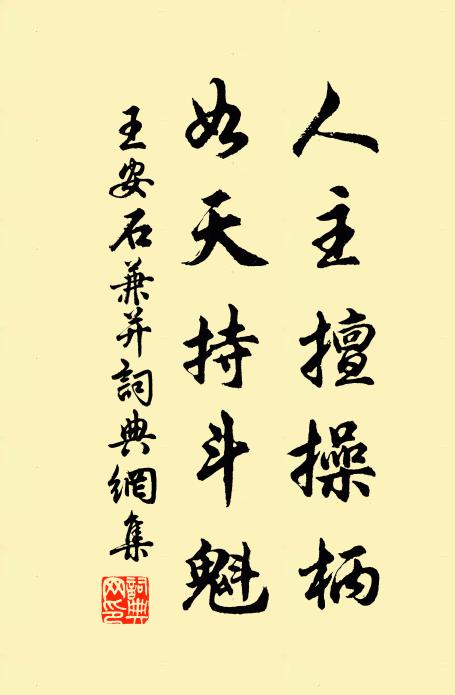 人主擅操柄
如天持斗魁
王安石兼并詞典網集
詞典網印